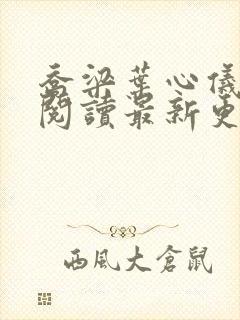 喬梁葉心儀
閱讀最新更
西風大倉鼠